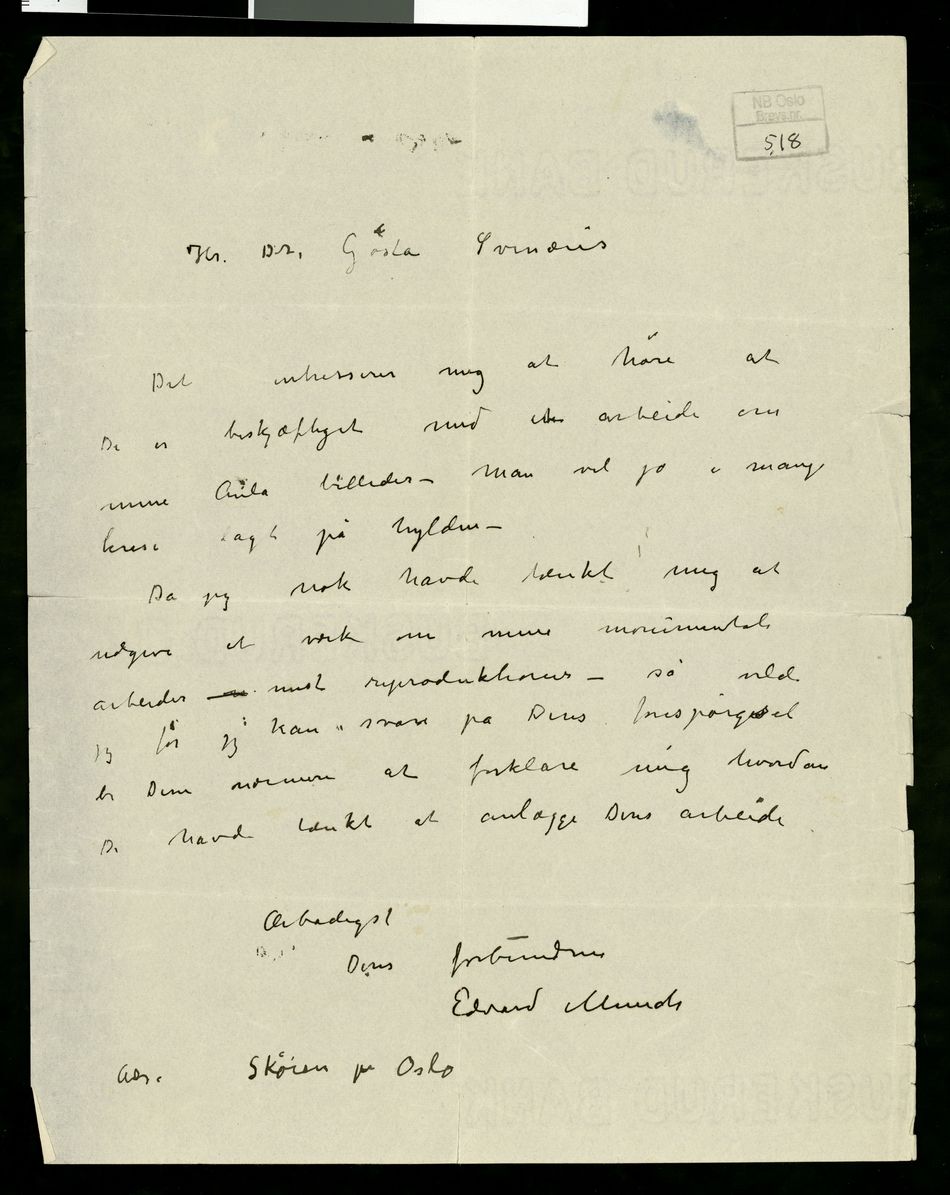 NB Oslo
Brevs.nr.
518
Hr. Dr. Gösta Svenæus
Det interesserer mig at höre at
De er beskjæftiget med et arbeide om
mine Aula billeder – Man vil jo i mange
krese lagt på hylden –
Da jeg nok havde tænkt mig at
udgive et værk om mine monumentale
arbeider med reproduktioner – så vilde
jeg för jeg kan svare på Deres forespörgsel
be Dem nærmere at forklare mig hvordan
De havde tænkt at anlægge Deres arbeide
Ærbödigst
Deres forbundne
Edvard Munch
Adr. Sköien pr Oslo
BUSKERUD BANK